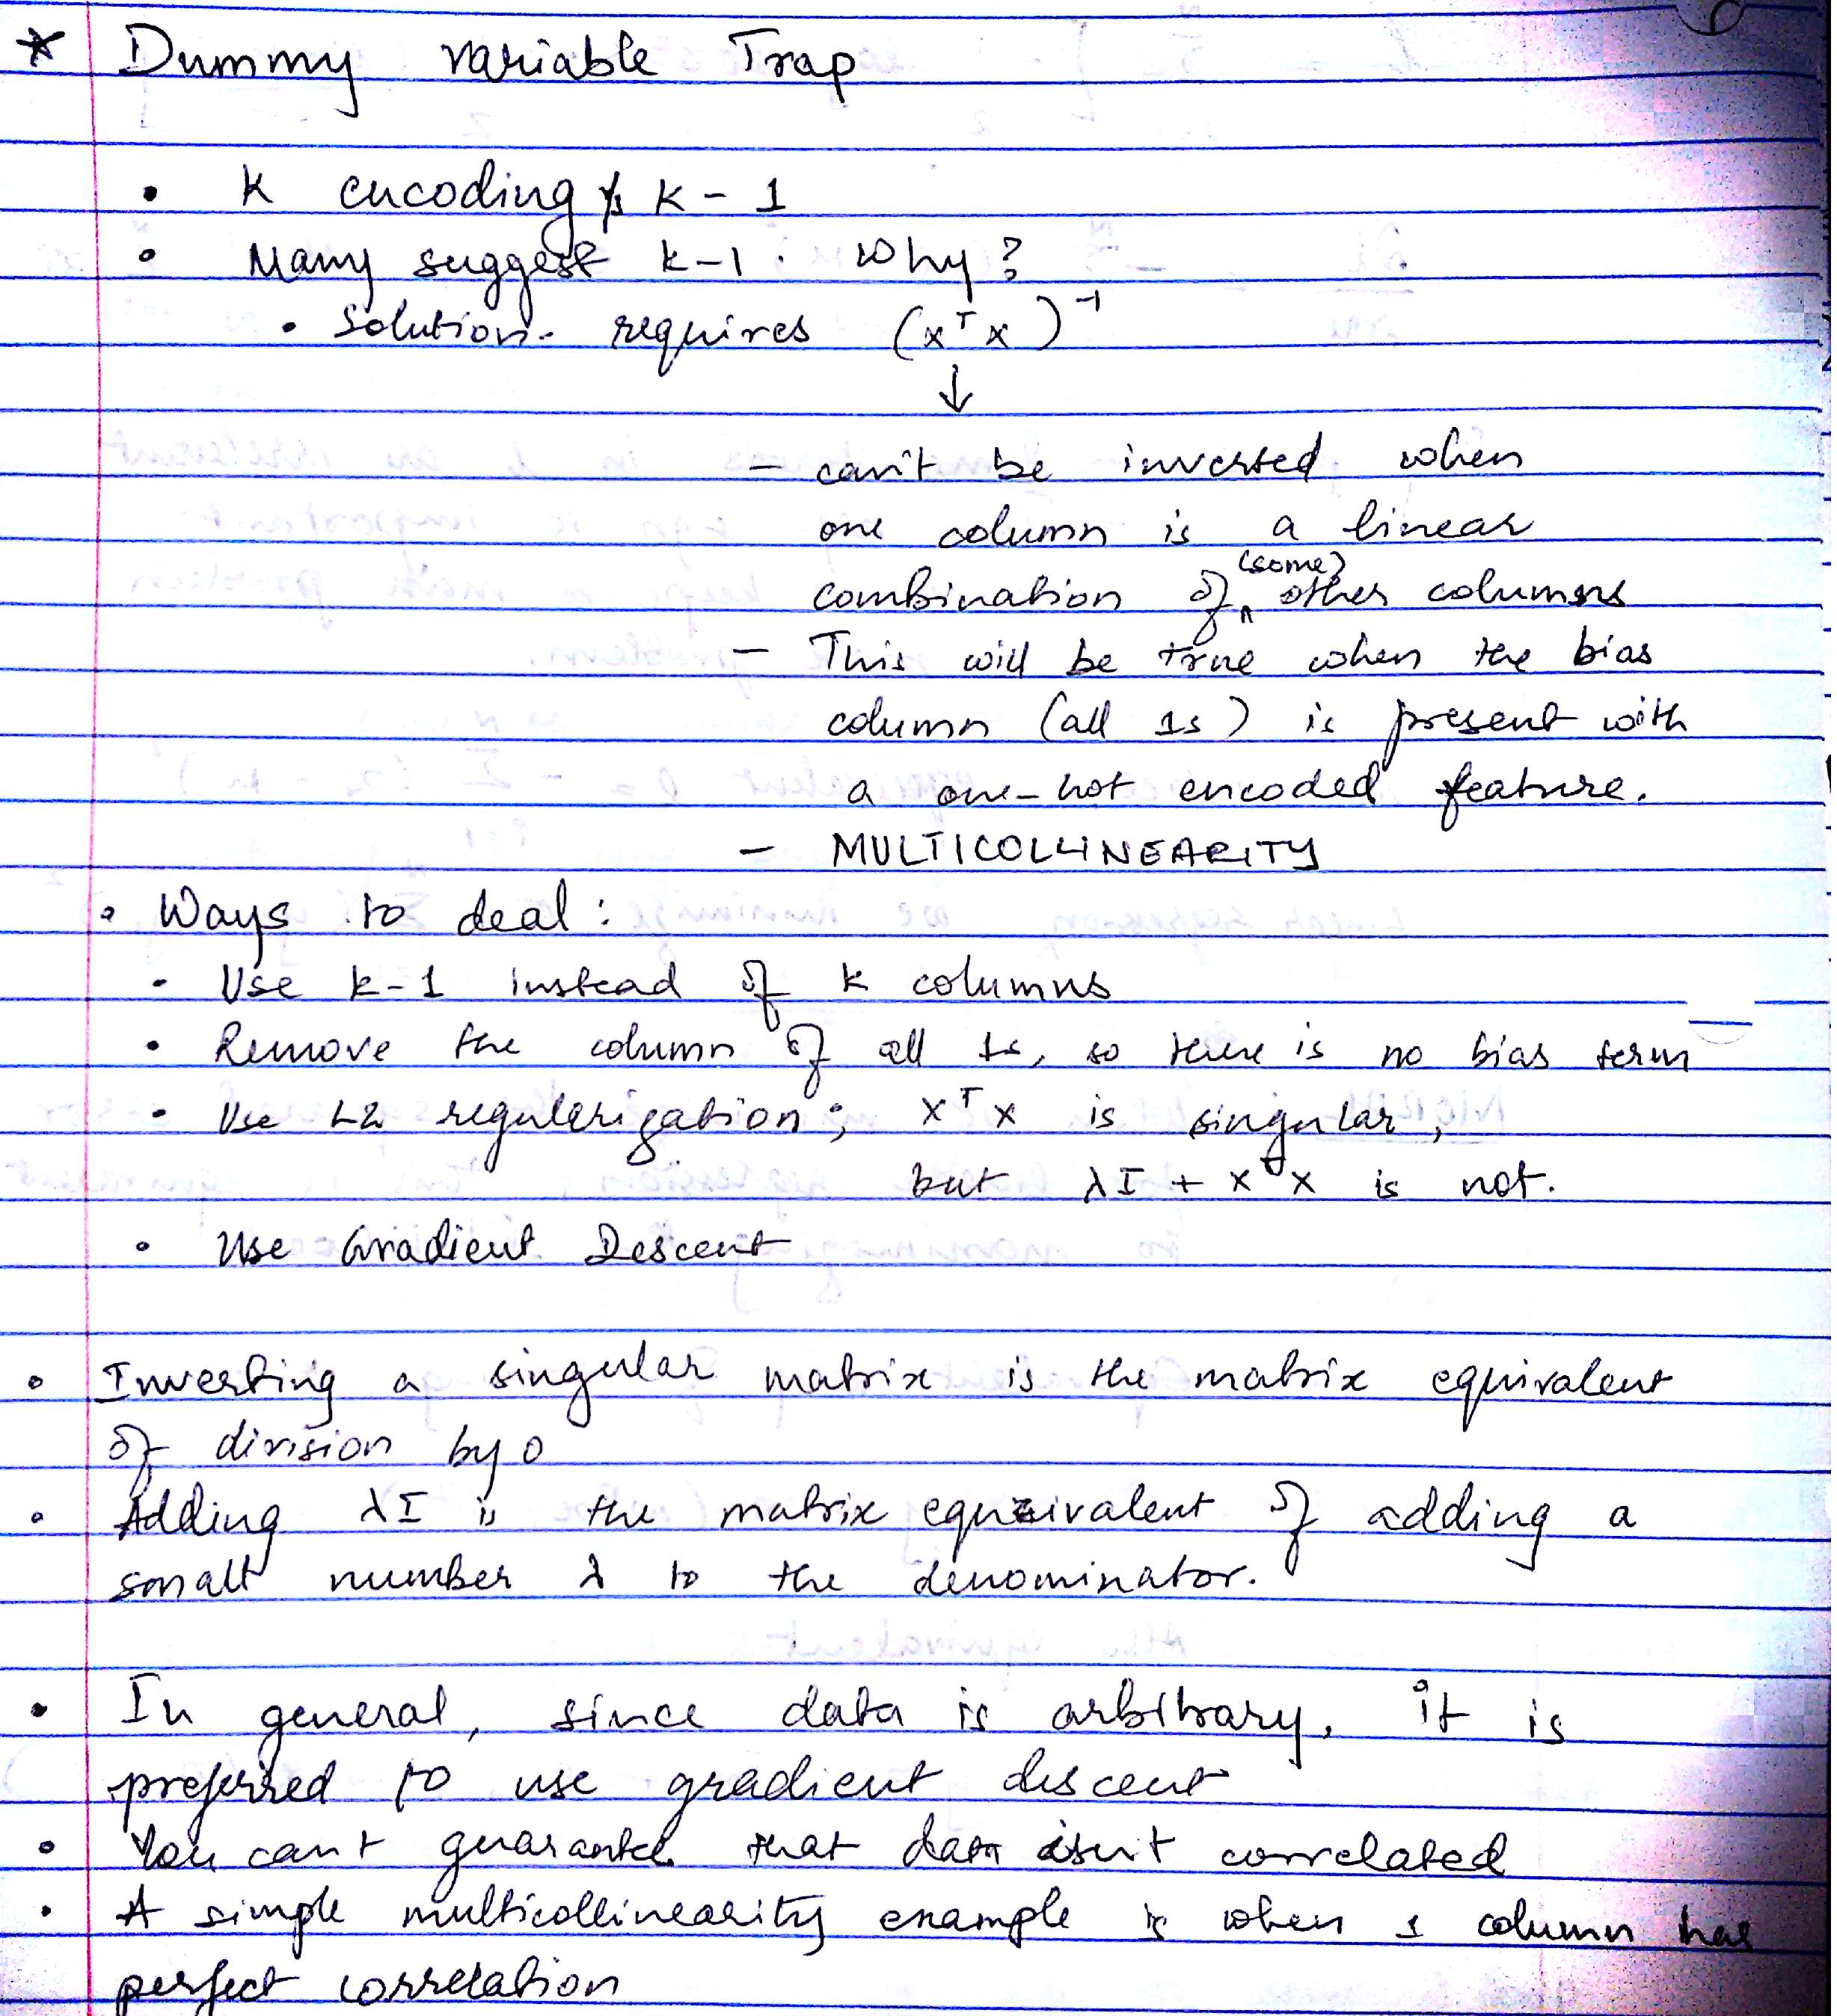 * Dummy variable Trap
• K encoding vs K - 1
• Many suggest k-1. Why?
• Solution requires (xᵀx)⁻¹
↓
- can't be inverted when
one column is a linear
combination of (some) other columns
- This will be true when the bias
column (all 1s) is present with
a one-hot encoded feature.
- MULTICOLLINEARITY
• Ways to deal:
• Use k-1 instead of k columns
• Remove the column of all 1s, so there is no bias term
• Use L2 regulerization; xᵀx is singular,
but λI + xᵀx is not.
• Use Gradient Descent
• Inverting a singular matrix is the matrix equivalent
of division by 0
• Adding λI is the matrix equivalent of adding a
small number λ to the denominator.
• In general, since data is arbitrary, it is
preferred to use gradient descent
• You can't guarantee that data isn't correlated
• A simple multicollinearity example is when 1 column has
perfect correlation